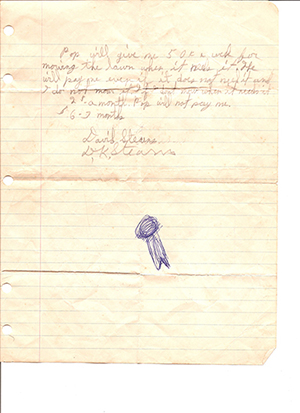 Pop will give me 50¢ a week for
mowing the lawn when it needs it. He
will pay me even if it does not need it and
I do not mow it. If not mow when it needs it
2 a month Pop will not pay me.
6-7 months
David Stearns
D.K. Stearns